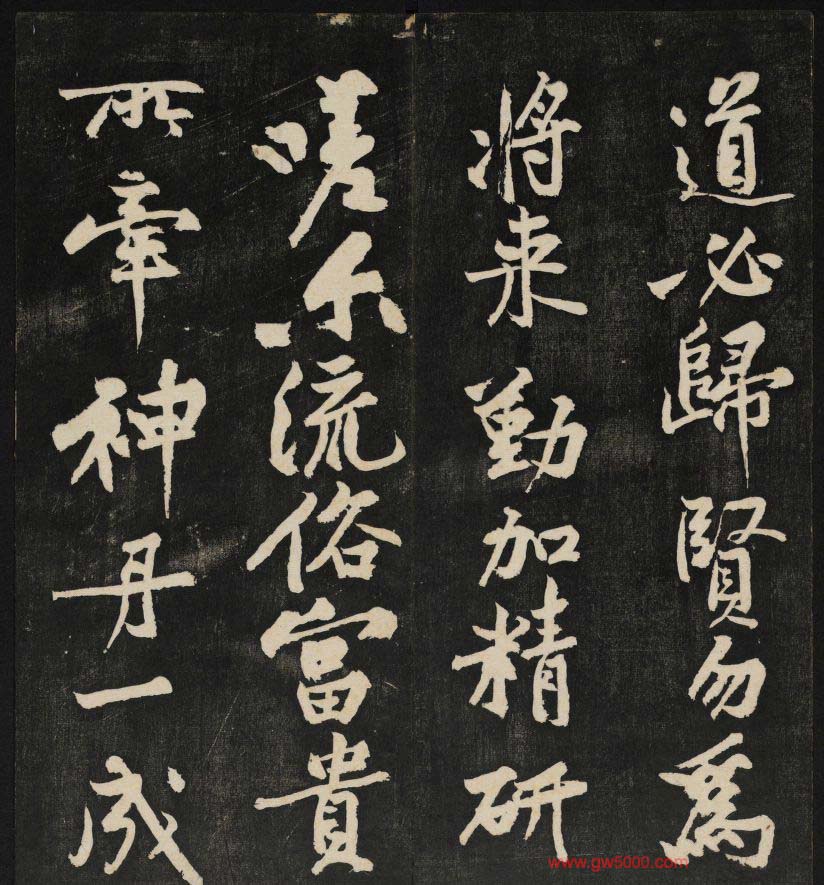 道必歸賢勿為
將来勤加精研
嗟尒流俗富貴
所牽神丹一成
www.gw5000.com